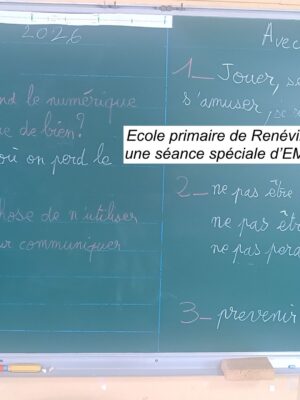 2026
nd le numérique
re de bien?
où on perd le
hose de n'utiliser
ur communiquer
Avec
1_ Jouer, se
s'amuser, se
Ecole primaire de Renévi
une séance spéciale d'EM
2_ ne pas être
ne pas être
ne pas perd
3_ prevenir